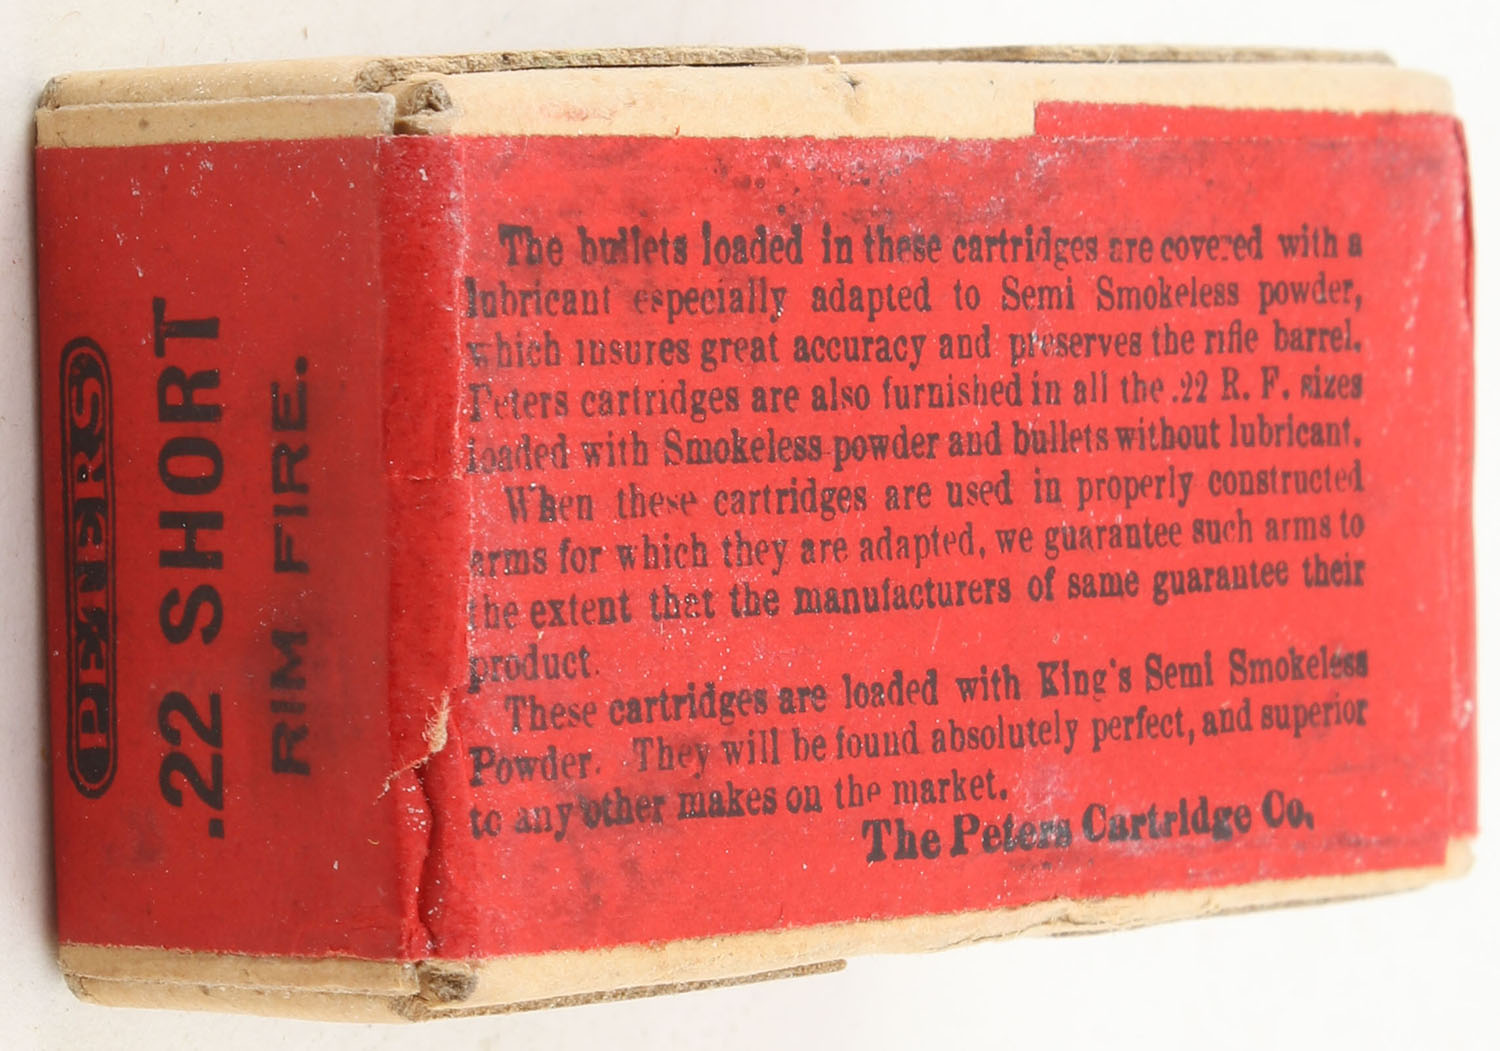 PETERS
.22 SHORT
RIM FIRE.
The bullets loaded in these cartridges are covered with a
lubricant especially adapted to Semi Smokeless powder,
which insures great accuracy and preserves the rifle barrel.
Peters cartridges are also furnished in all the .22 R. F. sizes
loaded with Smokeless powder and bullets without lubricant.
When these cartridges are used in properly constructed
arms for which they are adapted, we guarantee such arms to
the extent that the manufacturers of same guarantee their
product.
These cartridges are loaded with King's Semi Smokeless
Powder. They will be found absolutely perfect, and superior
to any other makes on the market.
The Peters Cartridge Co.